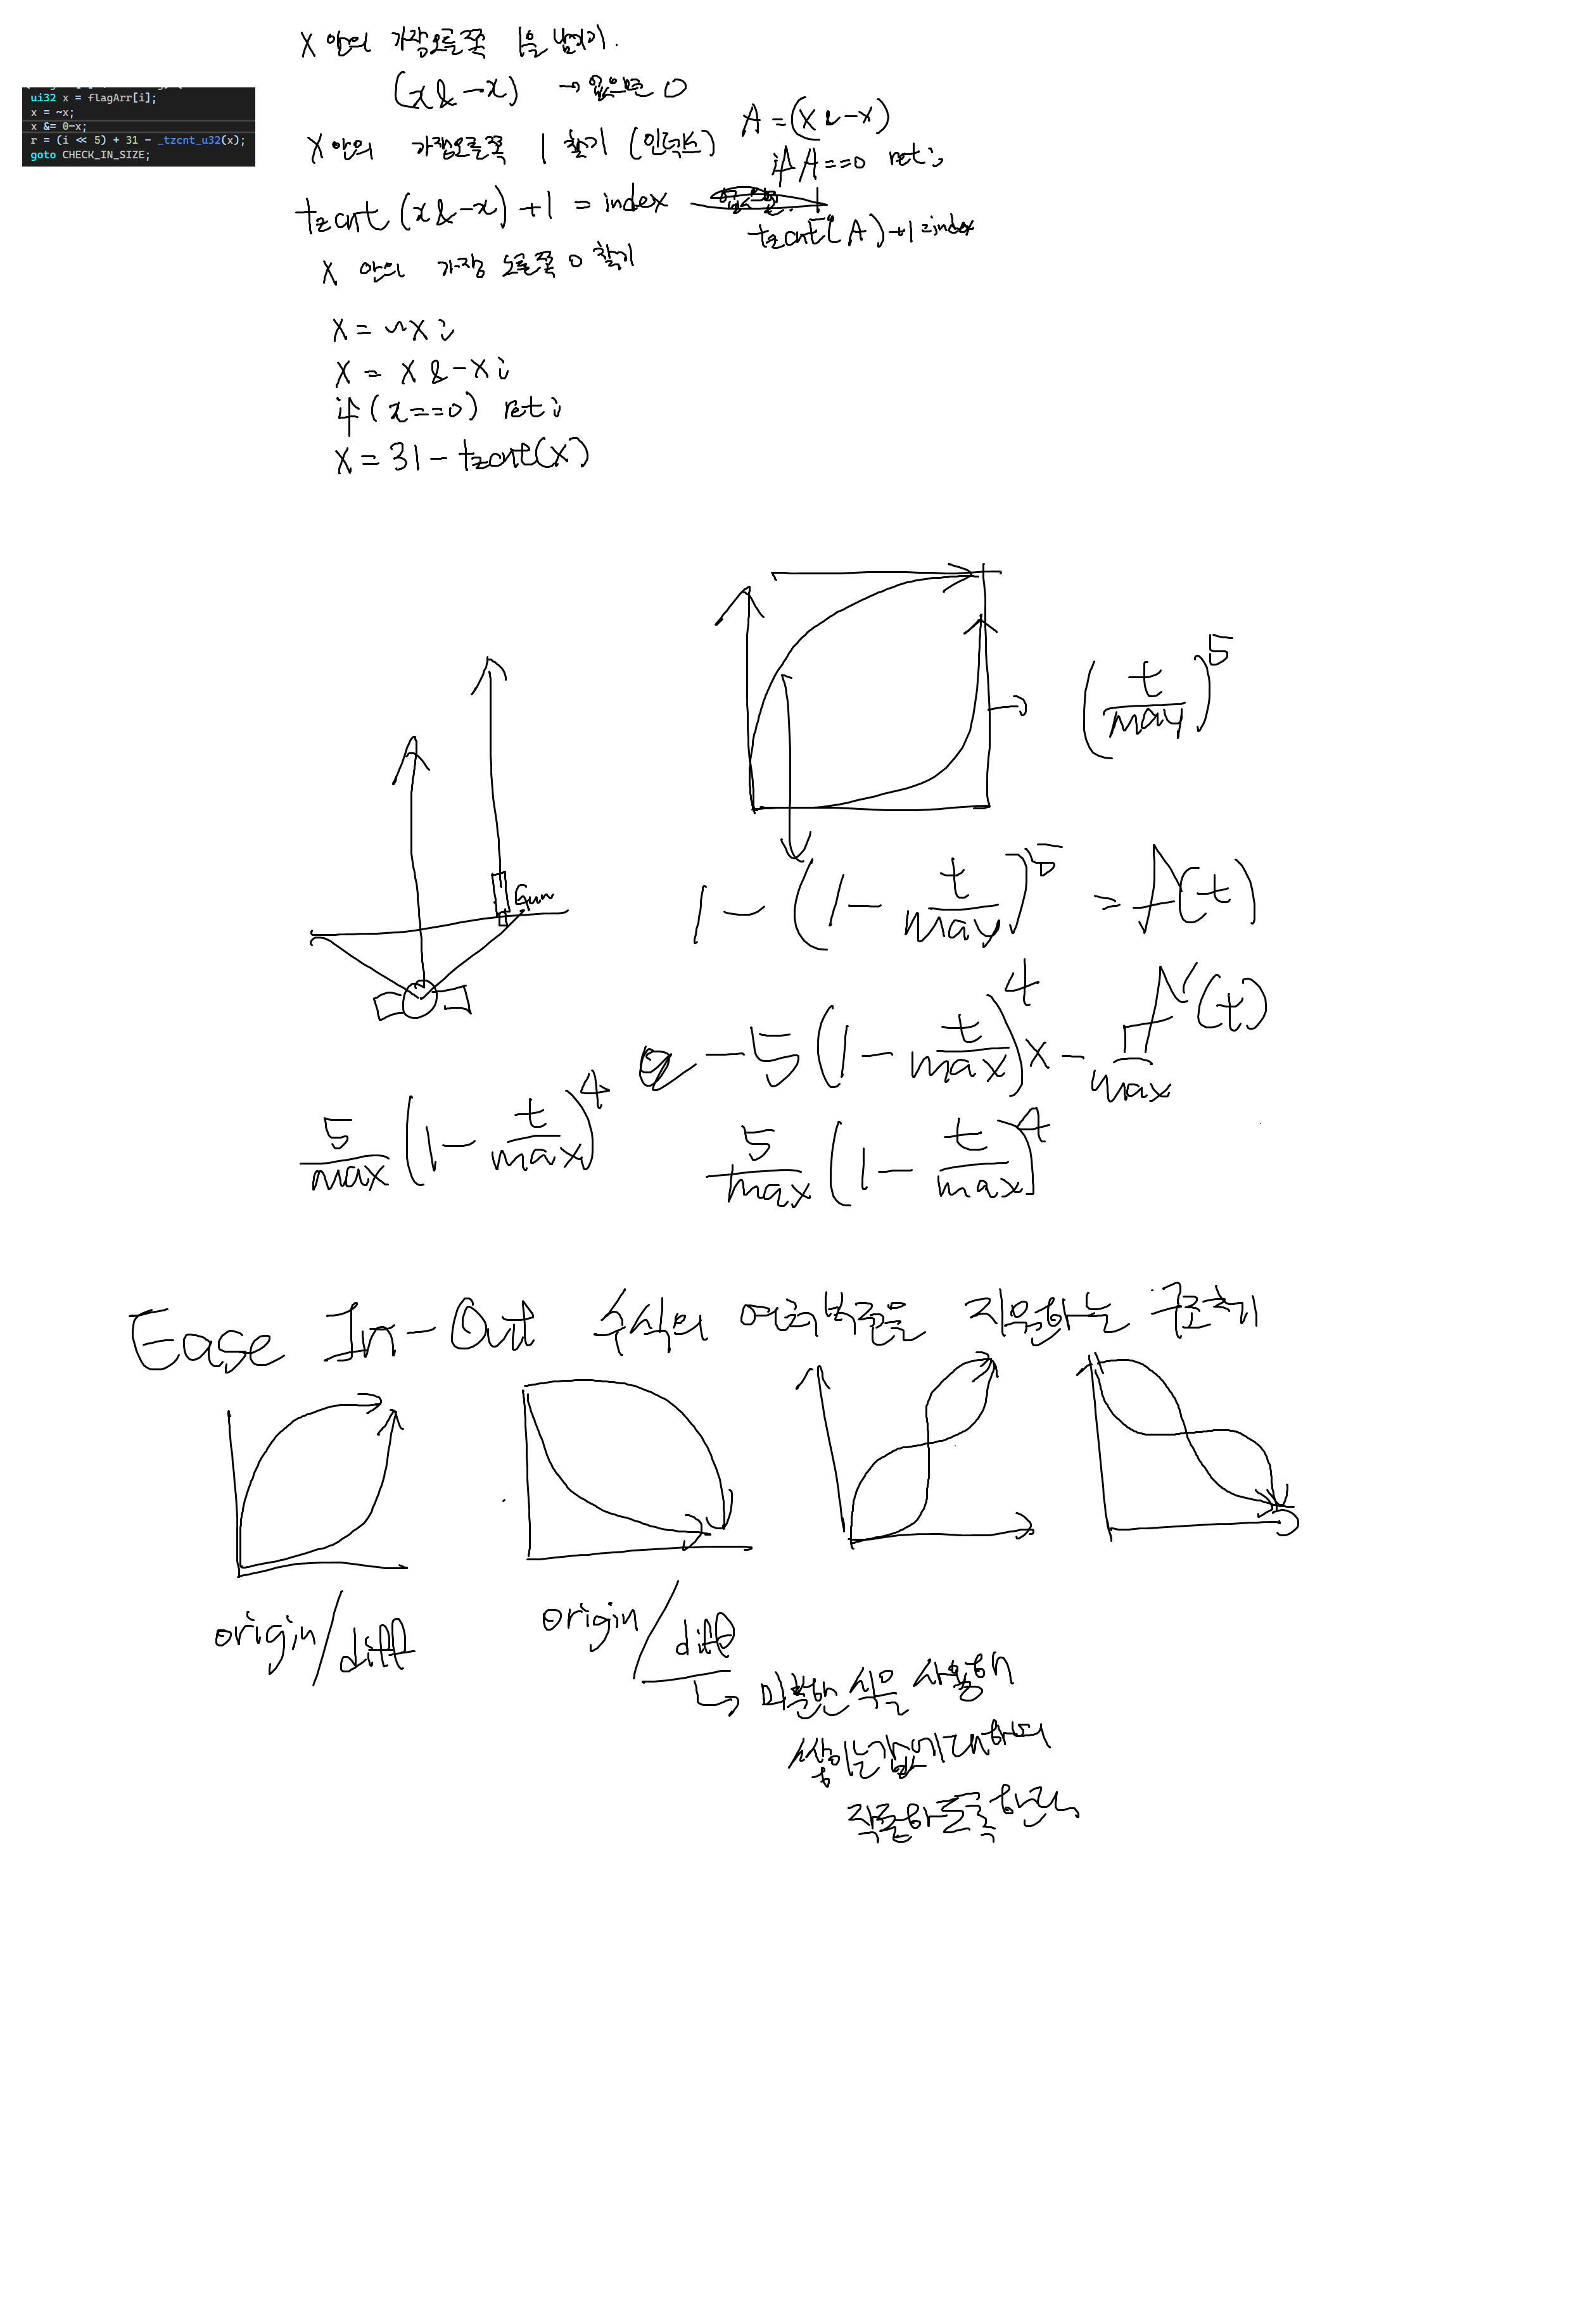 X 안의 가장오른쪽 1을 남기기.
(x&-x) → 없으면 0
ui32 x = flagArr[i];
x = ~x;
x &= 0-x;
r = (i << 5) + 31 - _tzcnt_u32(x);
goto CHECK_IN_SIZE;
X 안의 가장오른쪽 1 찾기 (인덱스)
tzcnt(x&-x)+1 = index
A = (x&-x)
if A==0 ret;
tzcnt(A)+1=index
X 안의 가장 오른쪽 0 찾기
X = ~X;
X = X&-X;
if(x==0) ret;
X = 31-tzcnt(X)
Gun
(t/max)^5
1-(1-t/max)^5 = f(t)
-5(1-t/max)^4 x -1/max f'(t)
5/max(1-t/max)^4
5/max(1-t/max)^4
Ease In-Out 수식의 여러버전을 지원하는 구조체
origin/diff
origin/diff
→ 미분한 식을 사용해
쌓이는값에대하여
작동하도록한다.